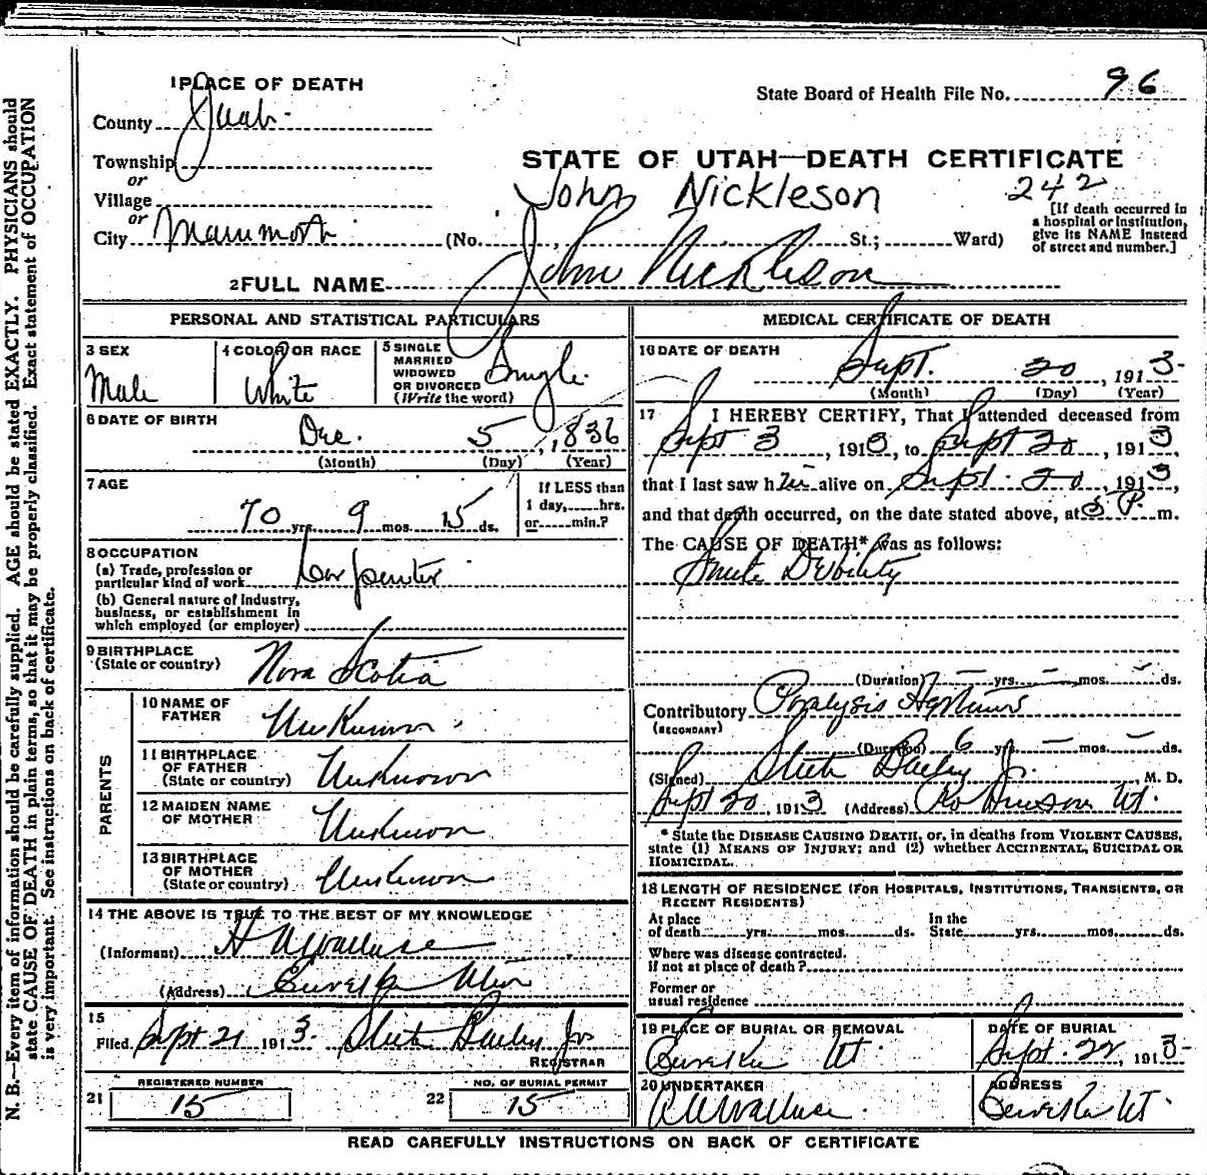 1 PLACE OF DEATH
County Juab
Township
or
Village
or
City Mammoth
State Board of Health File No. 96
STATE OF UTAH—DEATH CERTIFICATE
John Nickleson 242
(No. , St.; Ward)
[If death occurred in
a hospital or institution,
give its NAME instead
of street and number.]
2 FULL NAME John Nickleson
PERSONAL AND STATISTICAL PARTICULARS
3 SEX
Male
4 COLOR OR RACE
White
5 SINGLE
MARRIED
WIDOWED
OR DIVORCED
(Write the word)
Single
6 DATE OF BIRTH
Dec. 5, 1836
(Month) (Day) (Year)
7 AGE
70 yrs. 9 mos. 15 ds.
If LESS than
1 day, hrs.
or min.?
8 OCCUPATION
(a) Trade, profession or
particular kind of work Carpenter
(b) General nature of Industry,
business, or establishment in
which employed (or employer)
9 BIRTHPLACE
(State or country) Nova Scotia
PARENTS
10 NAME OF
FATHER Unknown
11 BIRTHPLACE
OF FATHER
(State or country) Unknown
12 MAIDEN NAME
OF MOTHER Unknown
13 BIRTHPLACE
OF MOTHER
(State or country) Unknown
14 THE ABOVE IS TRUE TO THE BEST OF MY KNOWLEDGE
(Informant) Wallace
(Address) Eureka Utah
15
Filed Sept 21 1913. Steele Bailey Jr
REGISTRAR
21 REGISTERED NUMBER
15
22 NO. OF BURIAL PERMIT
15
MEDICAL CERTIFICATE OF DEATH
16 DATE OF DEATH
Sept. 20, 1913
(Month) (Day) (Year)
17 I HEREBY CERTIFY, That I attended deceased from
Sept 3, 1913, to Sept 20, 1913,
that I last saw him alive on Sept. 20, 1913,
and that death occurred, on the date stated above, at P. m.
The CAUSE OF DEATH* was as follows:
Senile Debility
(Duration) yrs. mos. ds.
Contributory Paralysis
(SECONDARY)
(Duration) 6 yrs. mos. ds.
(Signed) Steele Bailey Jr., M. D.
Sept 20, 1913 (Address) Robinson Ut.
* State the DISEASE CAUSING DEATH, or, in deaths from VIOLENT CAUSES,
state (1) MEANS OF INJURY; and (2) whether ACCIDENTAL, SUICIDAL OR
HOMICIDAL.
18 LENGTH OF RESIDENCE (FOR HOSPITALS, INSTITUTIONS, TRANSIENTS, OR
RECENT RESIDENTS)
At place
of death yrs. mos. ds.
In the
State yrs. mos. ds.
Where was disease contracted.
if not at place of death?
Former or
usual residence
19 PLACE OF BURIAL OR REMOVAL
Eureka Ut.
DATE OF BURIAL
Sept. 22, 1913
20 UNDERTAKER
Wallace
ADDRESS
Eureka Ut.
READ CAREFULLY INSTRUCTIONS ON BACK OF CERTIFICATE
N. B.—Every item of information should be carefully supplied. AGE should be stated EXACTLY. PHYSICIANS should
state CAUSE OF DEATH in plain terms, so that it may be properly classified. Exact statement of OCCUPATION
is very important. See instructions on back of certificate.